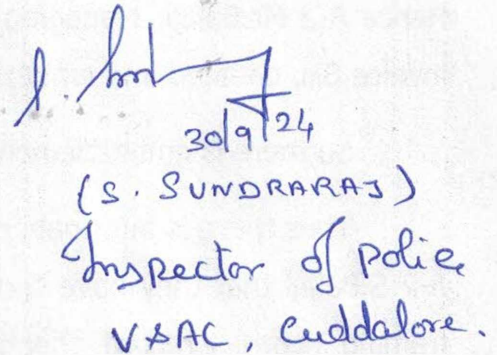 30/9/24
(S. SUNDRARAJ)
Inspector of police
V&AC, Cuddalore.